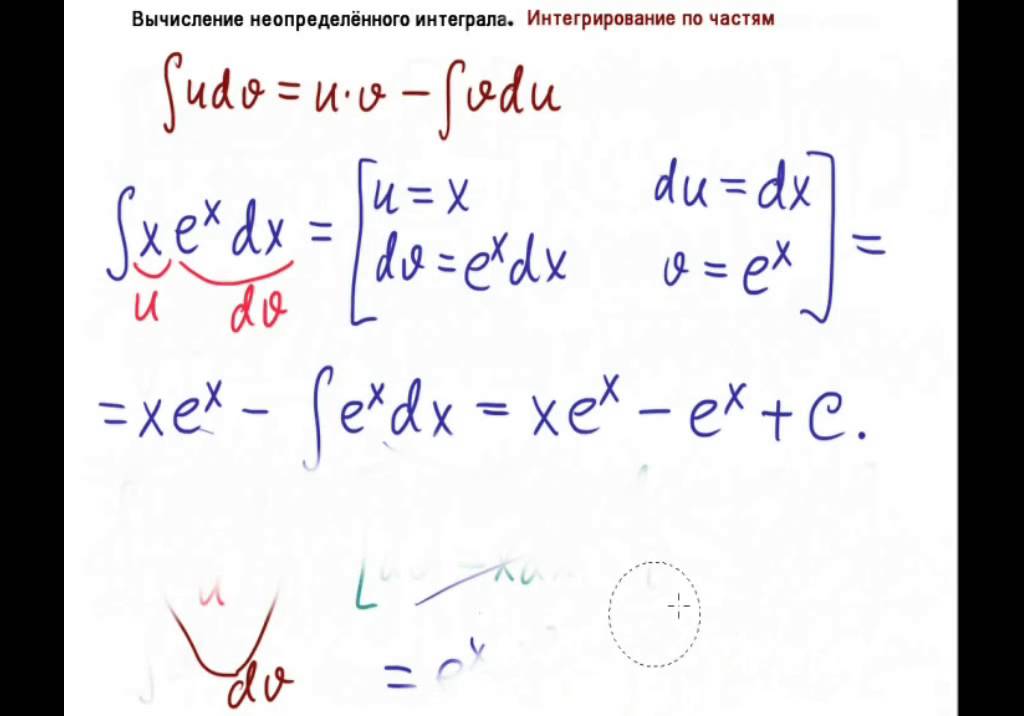 Вычисление неопределённого интеграла. Интегрирование по частям
∫udv = u·v − ∫vdu
∫xeˣdx = [u = x du = dx
dv = eˣdx v = eˣ] =
u dv
= xeˣ − ∫eˣdx = xeˣ − eˣ + C.
u
dv = eˣ